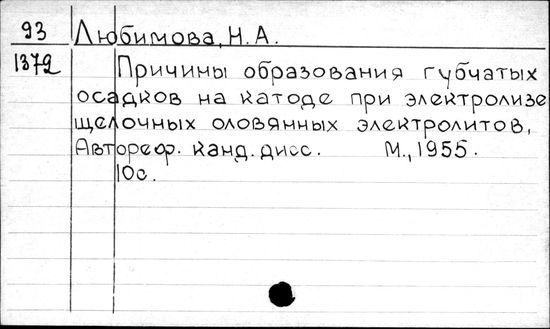 93 Любимова, Н. А.
1372 Причины образования губчатых
осадков на катоде при электролизе
щелочных оловянных электролитов,
Автореф. канд. дисс. М., 1955.
10с.